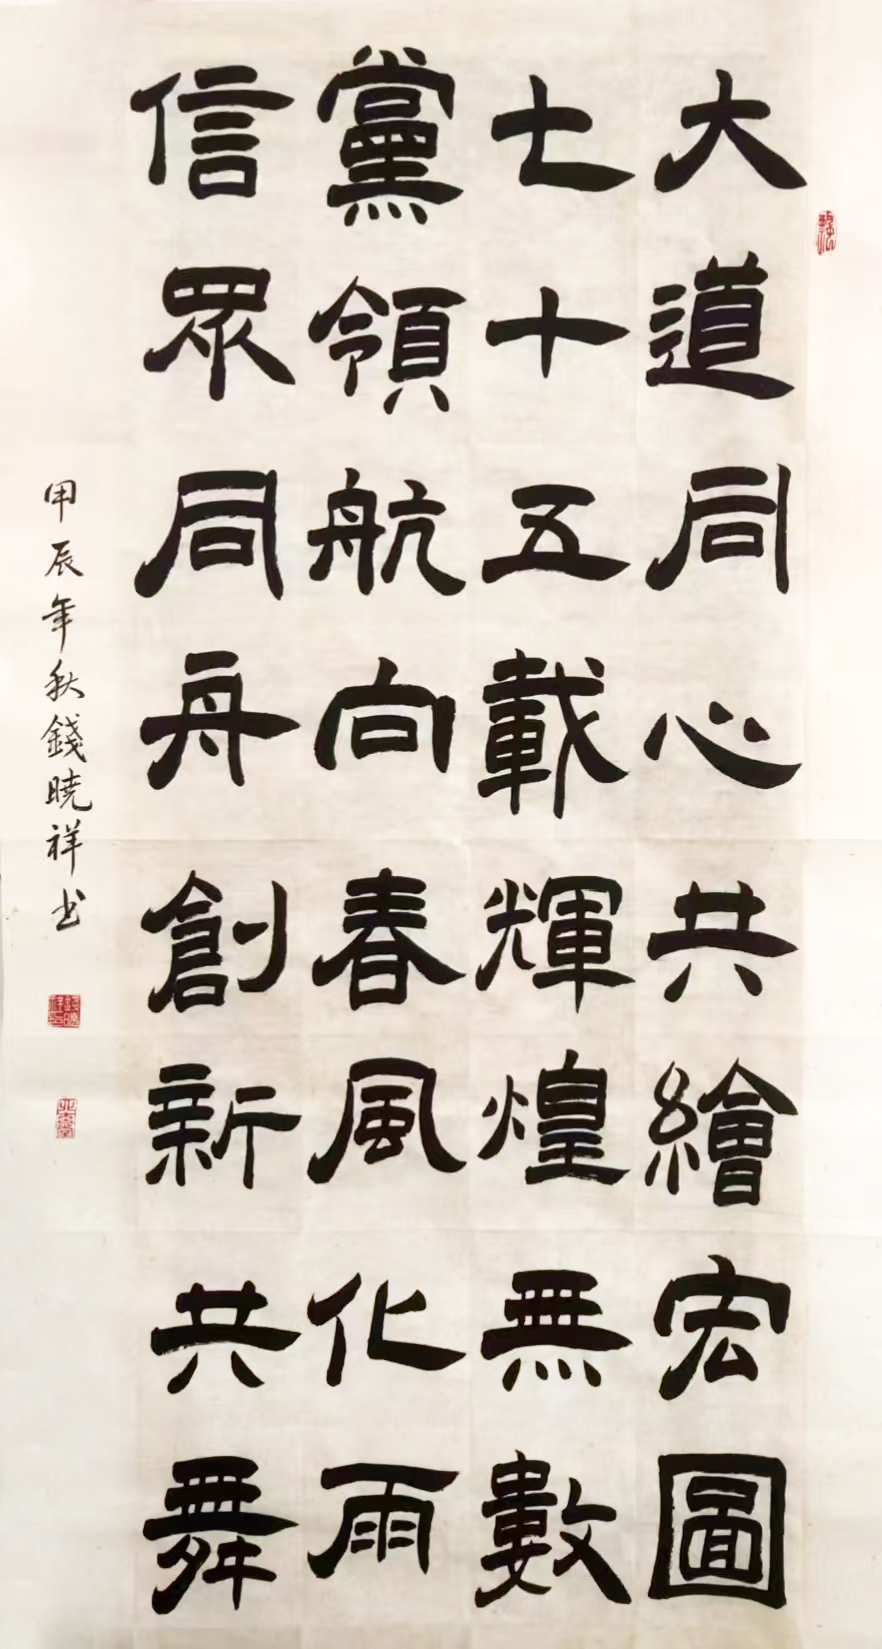 大道同心共繪宏圖
七十五載輝煌無數
黨領航向春風化雨
信眾同舟創新共舞
甲辰年秋錢曉祥书